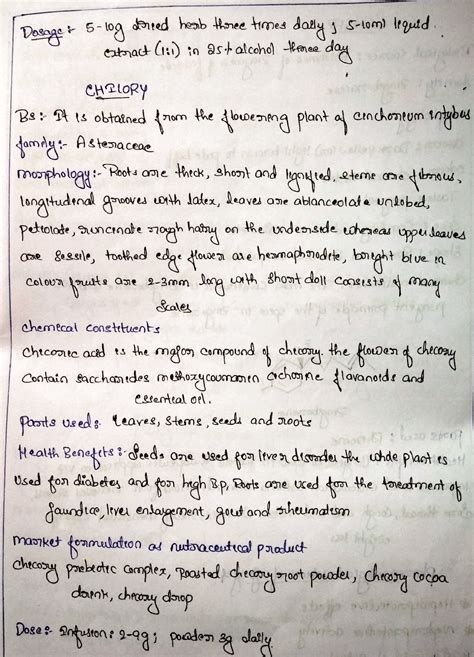 Dosage :- 5-10g dried herb three times daily ; 5-10ml liquid
extract (1:1) in 25% alcohol three day
CHICORY
BS :- It is obtained from the flowering plant of cinchorium intybus
family :- Asteraceae
morphology :- Roots are thick, short and lignified, stems are fibrous,
longitudenal grooves with latex, leaves are ablanceolate unlobed,
petiolate, runcinate rough hairy on the underside whereas upper leaves
are sessile, toothed edge flower are hermaphrodite, bright blue in
colour fruits are 2-3mm long with short doll consists of many
scales
chemical constituents
Chicoric acid is the major compound of chicory. the flower of chicory
Contain saccharides methoxycoumarin cichorine flavanoids and
essential oil.
Parts used : Leaves, stems, seeds and roots
Health Benefits :- Seeds are used for liver disorder the whole plant is
used for diabetes and for high Bp, Roots are used for the treatment of
Jaundice, liver enlargement, gout and rheumatism
market formulation as nutraceutical product
Chicory prebiotic complex, Roasted chicory root powder, chicory cocoa
drink, chicory drop
Dose :- Infusion : 2-9g ; powder 3g daily.